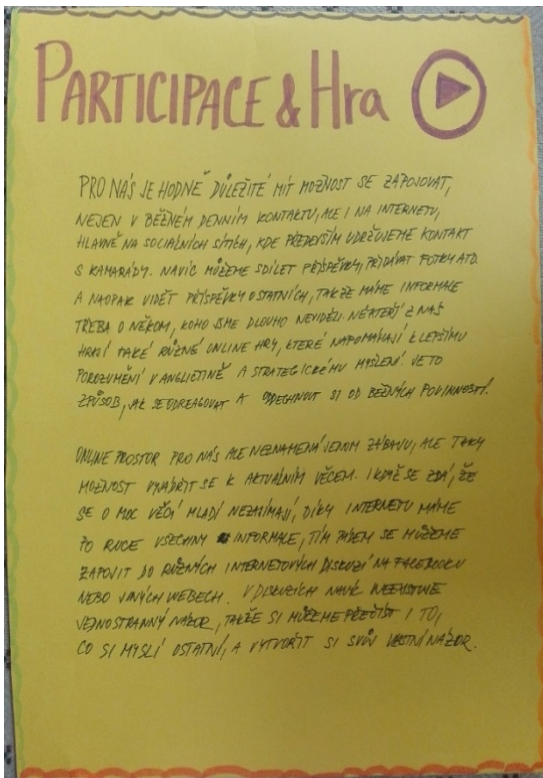 PARTICIPACE & Hra
PRO NÁS JE HODNĚ DŮLEŽITÉ MÍT MOŽNOST SE ZAPOJOVAT,
NEJEN V BĚŽNÉM DENNÍM KONTAKTU, ALE I NA INTERNETU,
HLAVNĚ NA SOCIÁLNÍCH SÍTÍCH, KDE PŘEDEVŠÍM UDRŽUJEME KONTAKT
S KAMARÁDY. NAVÍC MŮŽEME SDÍLET PŘÍSPĚVKY, PŘIDÁVAT FOTKY ATD.
A NAOPAK VIDĚT PŘÍSPĚVKY OSTATNÍCH, TAKŽE MÁME INFORMACE
TŘEBA O NĚKOM, KOHO JSME DLOUHO NEVIDĚLI. NĚKTEŘÍ Z NÁS
HRAJÍ TAKÉ RŮZNÉ ONLINE HRY, KTERÉ NAPOMÁHAJÍ K LEPŠÍMU
POROZUMĚNÍ V ANGLIČTINĚ A STRATEGICKÉMU MYŠLENÍ. JE TO
ZPŮSOB, JAK SE ODREAGOVAT A ODDECHNOUT SI OD BĚŽNÝCH POVINNOSTÍ.
ONLINE PROSTOR PRO NÁS ALE NEZNAMENÁ JENOM ZÁBAVU, ALE TAKY
MOŽNOST VYJÁDŘIT SE K AKTUÁLNÍM VĚCEM. I KDYŽ SE ZDÁ, ŽE
SE O MOC VĚCÍ MLADÍ NEZAJÍMAJÍ, DÍKY INTERNETU MÁME
PO RUCE VŠECHNY INFORMACE, TÍM PÁDEM SE MŮŽEME
ZAPOJIT DO RŮZNÝCH INTERNETOVÝCH DISKUZÍ NA FACEBOOKU
NEBO JINÝCH WEBECH. V DISKUZÍCH NAVÍC NEEXISTUJE
JEDNOSTRANNÝ NÁZOR, TAKŽE SI MŮŽEME PŘEČÍST I TO,
CO SI MYSLÍ OSTATNÍ, A VYTVOŘIT SI SVŮJ VLASTNÍ NÁZOR.